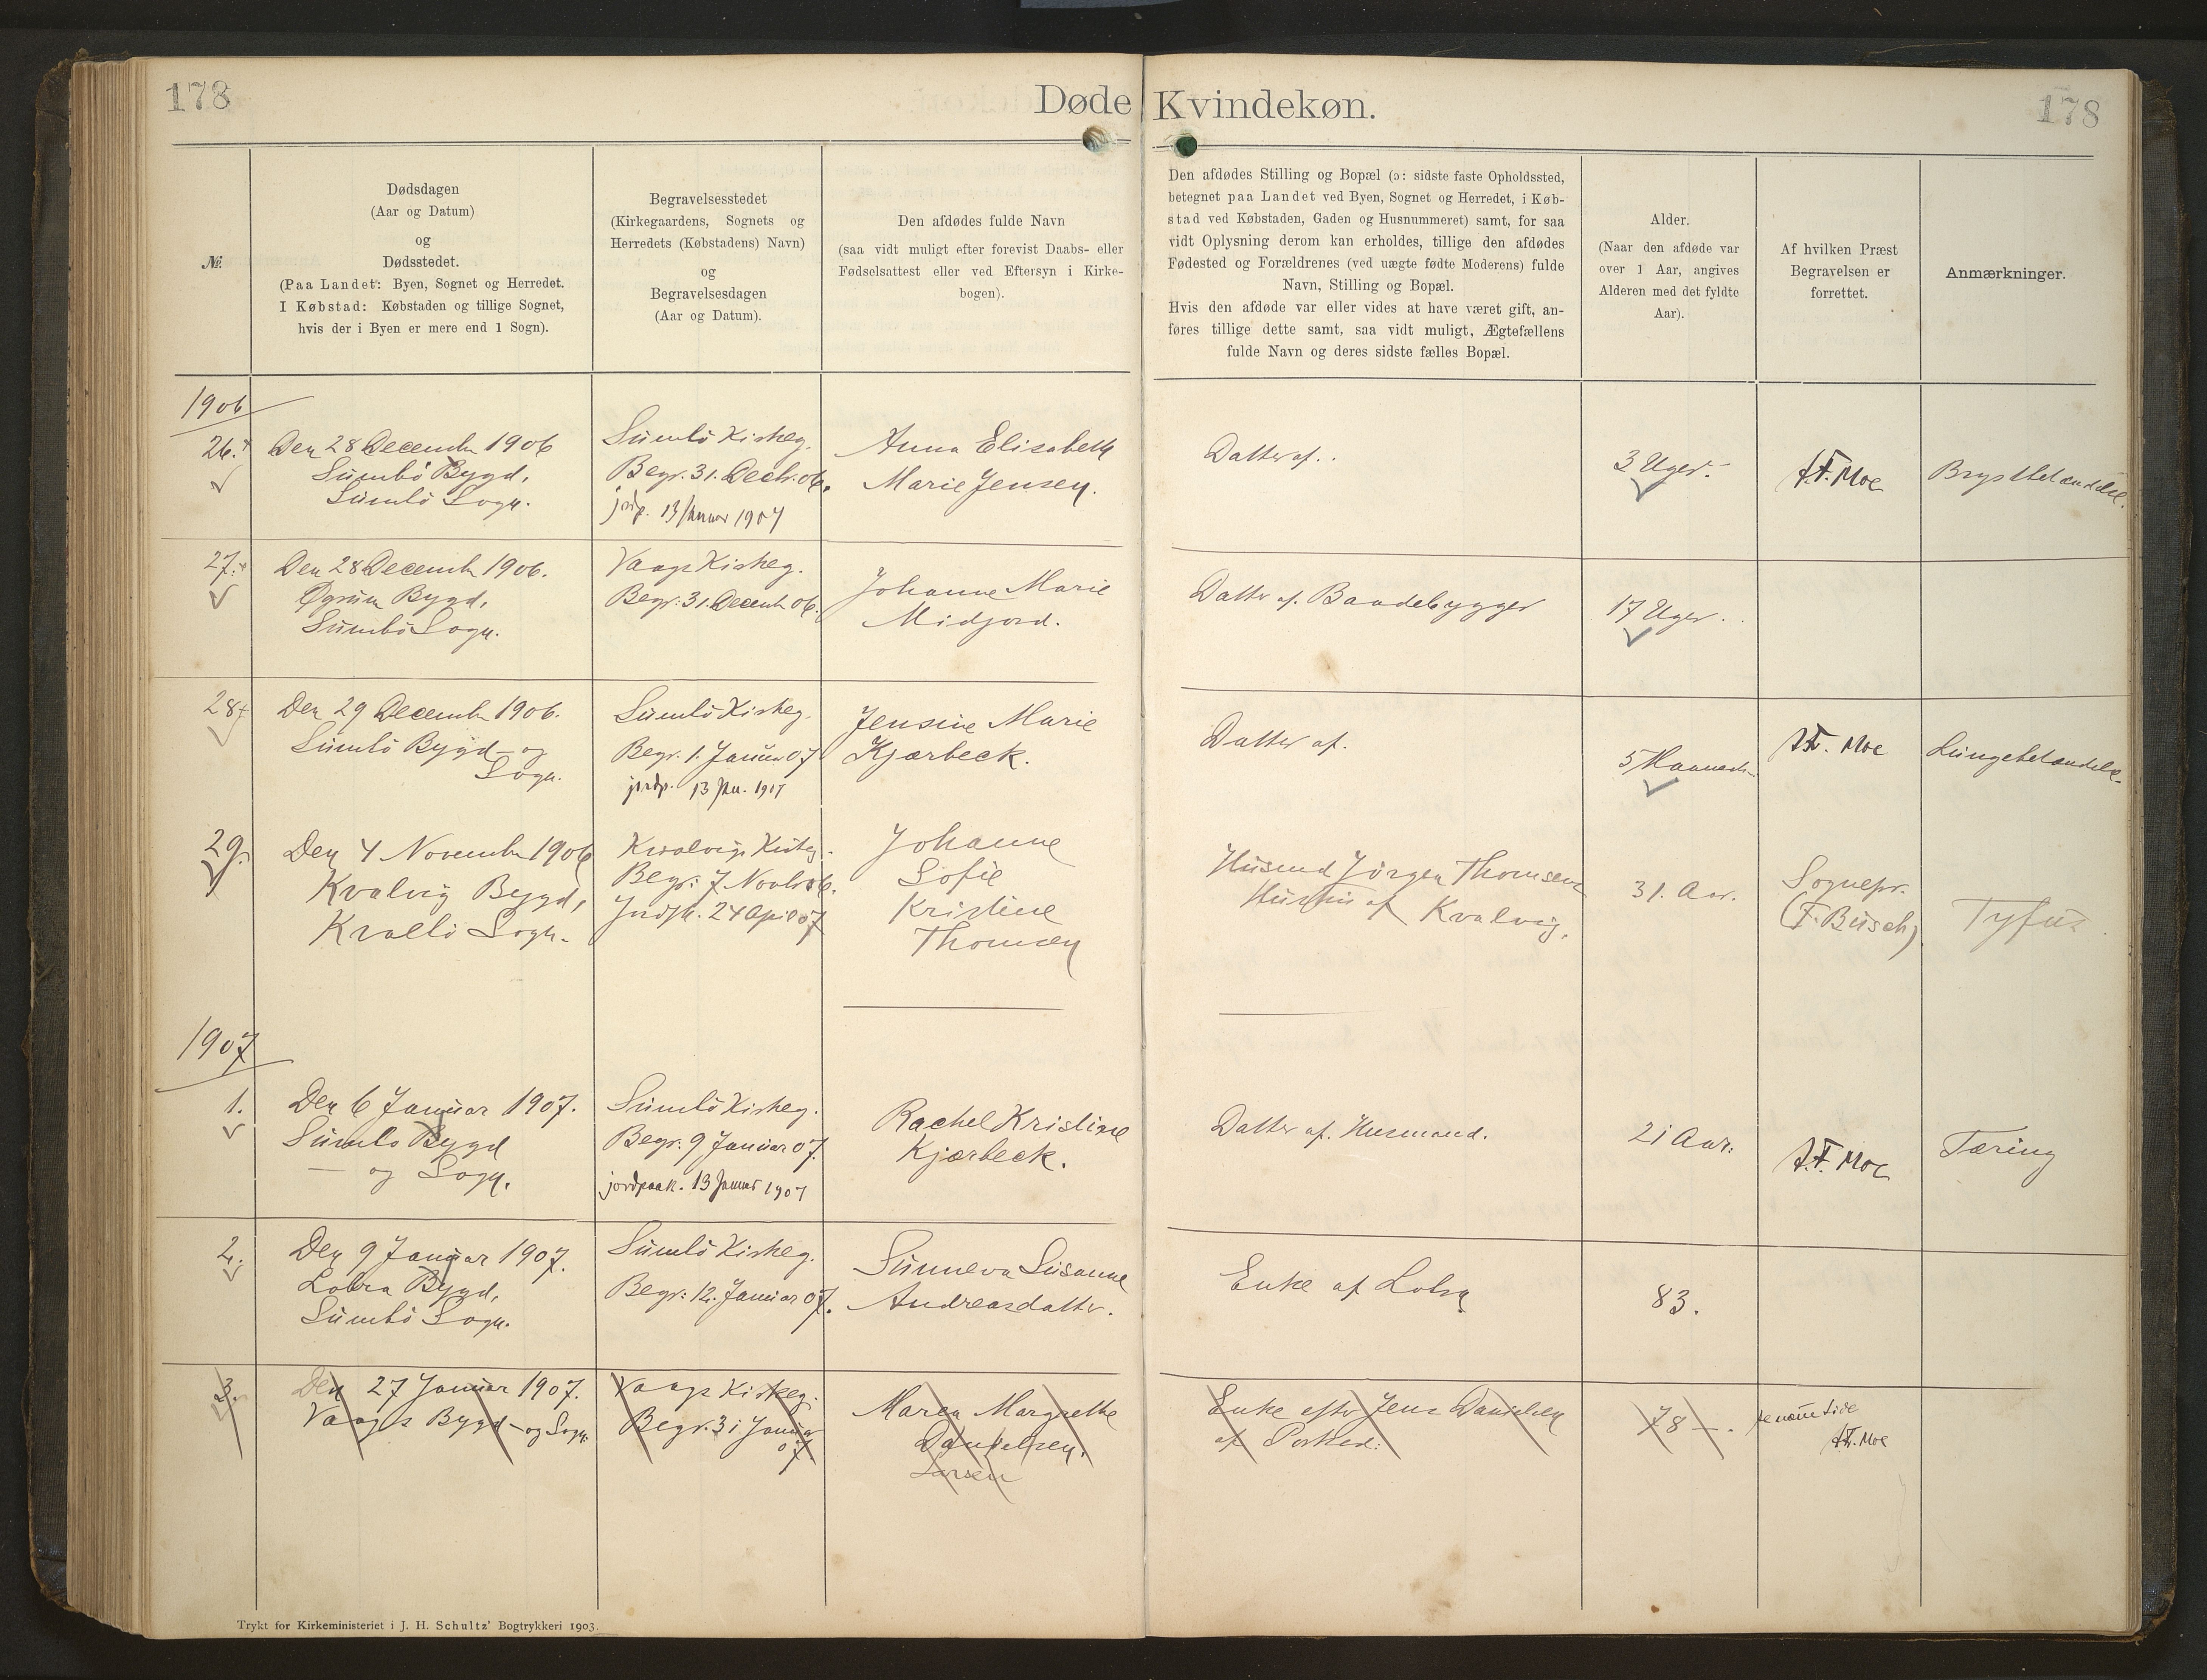 178
Døde Kvindekøn.
178
№
Dødsdagen
(Aar og Datum)
og
Dødsstedet.
(Paa Landet: Byen, Sognet og Herredet.
I Købstad: Købstaden og tillige Sognet,
hvis der i Byen er mere end 1 Sogn).
Begravelsesstedet
(Kirkegaardens, Sognets og
Herredets (Købstadens) Navn)
og
Begravelsesdagen
(Aar og Datum).
Den afdødes fulde Navn
(saa vidt muligt efter forevist Daabs- eller
Fødselsattest eller ved Eftersyn i Kirke-
bogen).
Den afdødes Stilling og Bopæl (ɔ: sidste faste Opholdssted,
betegnet paa Landet ved Byen, Sognet og Herredet, i Køb-
stad ved Købstaden, Gaden og Husnummeret) samt, for saa
vidt Oplysning derom kan erholdes, tillige den afdødes
Fødested og Forældrenes (ved uægte fødte Moderens) fulde
Navn, Stilling og Bopæl.
Hvis den afdøde var eller vides at have været gift, an-
føres tillige dette samt, saa vidt muligt, Ægtefællens
fulde Navn og deres sidste fælles Bopæl.
Alder.
(Naar den afdøde var
over 1 Aar, angives
Alderen med det fyldte
Aar).
Af hvilken Præst
Begravelsen er
forrettet.
Anmærkninger.
1906
26.
Den 28 December 1906
Sumbö Bygd,
Sumbö Sogn.
Sumbö Kirkeg.
Begr. 31. Decbr. 06.
jordp. 13 Januar 1907
Anna Elisabeth
Marie Jensen.
Datter af.
3 Uger.
F. Moe
Brystbetændelse.
27.
Den 28 December 1906.
Bygd,
Sumbö Sogn.
Vaags Kirkeg.
Begr. 31. Decemb. 06.
Johanne Marie
Midjord.
Datter af. Baadebygger
17 Uger.
28
Den 29 December 1906.
Sumbö Bygd - og
Sogn.
Sumbö Kirkeg.
Begr. 1. Januar 07
jordp. 13 Jan. 1907
Jensine Marie
Kjærbeck.
Datter af.
5 Maaneder
F. Moe
Lungebetændelse
29.
Den 4 November 1906
Kvalvig Bygd,
Kvalbö Sogn.
Kvalvigs Kirkeg.
Begr. 7 Novbr 06.
Jordp. 24 April 07
Johanne
Sofie
Kristine
Thomsen
Husmd Jörgen Thomsens
Hustru af Kvalvig.
31. Aar.
Sognepr.
(F. Busch)
Tyfus
1907
1.
Den 6 Januar 1907.
Sumbö Bygd
— og Sogn.
Sumbö Kirkeg.
Begr. 9 Januar 07.
jordpaak. 13 Januar 1907
Rachel Kristine
Kjærbeck.
Datter af. Husmand.
21 Aar.
F. Moe
Tæring
2.
Den 9 Januar 1907.
Lobra Bygd,
Sumbö Sogn.
Sumbö Kirkeg.
Begr: 12. Januar 07.
Sunneva Susanne
Andreasdatter.
Enke af Lobra
83.
3.
Den 27 Januar 1907.
Vaags Bygd - og Sogn.
Vaags Kirkeg.
Begr. 31 Januar
07
Maren Margrethe
Danielsen.
Larsen
Enke efter Jens Danielsen
af Porkeri.
78
Side
F. Moe
Trykt for Kirkeministeriet i J. H. Schultz' Bogtrykkeri 1903.